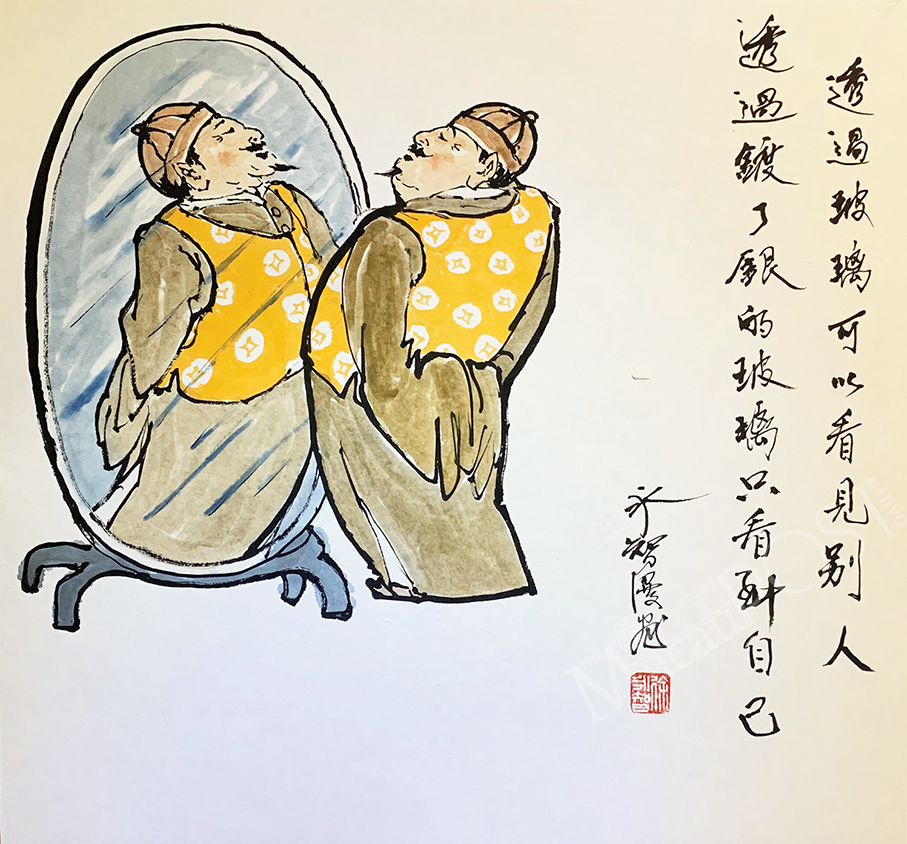 透過玻璃可以看見别人
透過鍍了銀的玻璃只看到自己
永智漫
Macau POST